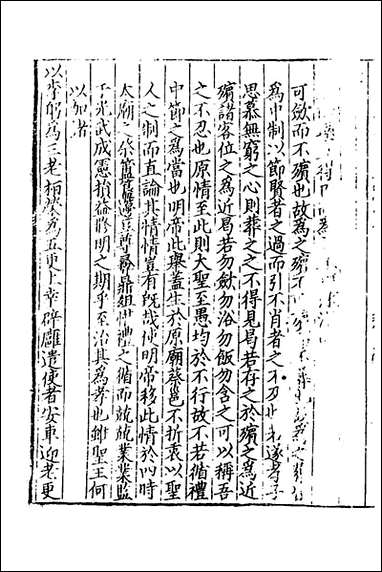 可斂而不殯也故為之殯
為中制以節賢者之過而引不肖者之不及也遂孝子
思慕無窮之心則葬之之不得見曷若存之於殯之為近
殯諸客位之為近曷若勿斂勿浴勿飯勿含之可以稱吾
之不忍也原情至此則大聖至愚均於不行故不若循禮
中節之為當也明帝此舉蓋生於原廟蔡邕不折衷以聖
人之制而直論其情情豈有既哉使明帝移此情於四時
太廟之祭簠簋籩豆尊彝鼎俎惟禮之循而兢兢業業監
于光武成憲損益脩明之期乎至治其為孝也雖聖王何
以加諸
以李躬為三老桓榮為五更上幸辟雍遣使者安車迎老更